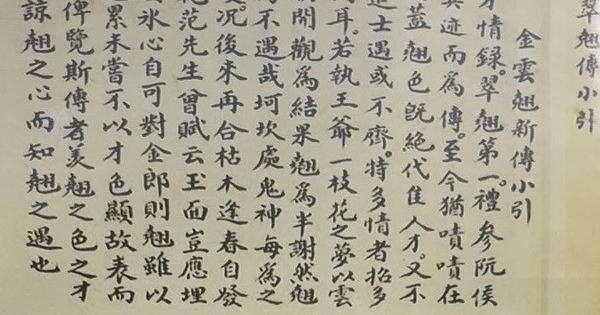 翠翹傳小引
金雲翹新傳小引
才情錄。翠翹第一。禮參阮侯
其迹而為傳。至今猶嘖嘖在
蓋翹色既絕代隹人才。又不
士遇或不齊。特多情者招多
耳。若執王爺一枝花之夢以雲
開觀為結果翹為半謝然翹
不遇哉坷坎處鬼神每為之
況後來再合枯木逢春自發
范先生曾賦云玉面豈應埋
氷心自可對金郎則翹雖以
累未嘗不以才色顯故表而
俾覽斯傳者羡翹之色之才
諒翹之心而知翹之遇也